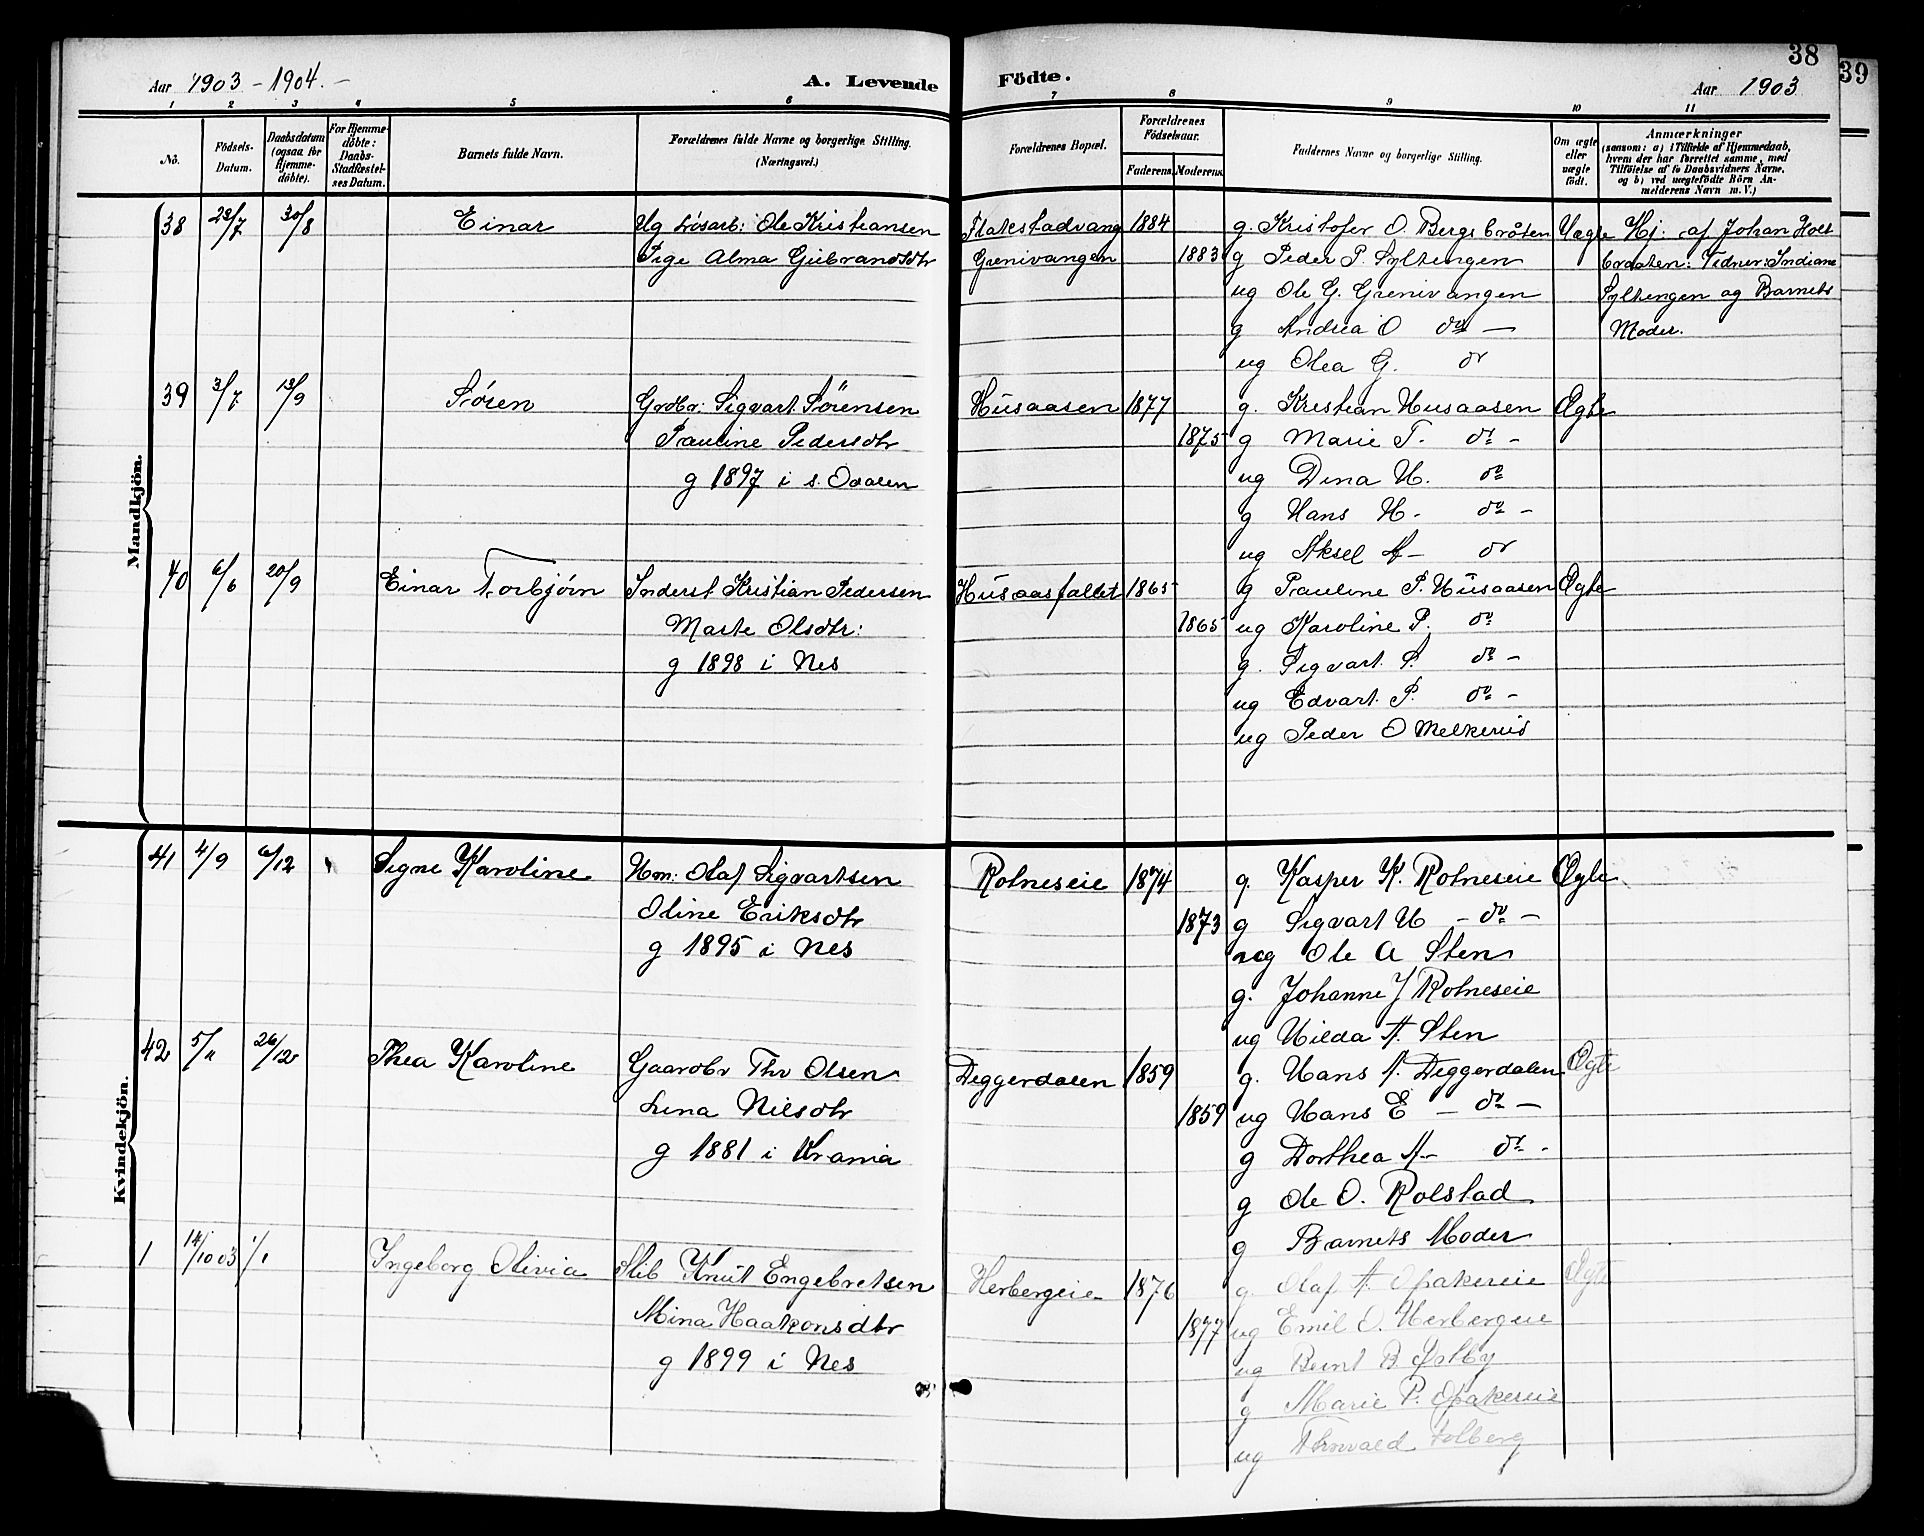 38
39
Aar 1903 - 1904. -
A. Levende
Födte.
Aar 1903
1 2 3 4 5 6 7 8 9 10 11
No.
Födsels-Datum.
Daabsdatum (ogsaa for Hjemme-döbte).
For Hjemme-döbte: Daabs-Stadfæstel-ses Datum.
Barnets fulde Navn.
Forældrenes fulde Navne og borgerlige Stilling. (Næringsvei.)
Forældrenes Bopæl.
Forældrenes Födselsaar.
Faderens. Moderens.
Faddernes Navne og borgerlige Stilling.
Om ægte eller uægte födt.
Anmærkninger
(saasom: a) i Tilfælde af Hjemmedaab, hvem der har forrettet samme, med Tilföielse af to Daabsvidners Navne, og b) ved uægtefödte Börn An-melderens Navn m. V.)
Mandkjön.
38 23/7 30/8 Einar Ug Løsarb: Ole Kristiansen Flakstadvang 1884 g. Kristofer O. Bergsbråten Uægte Hj: af Johan Holt
Pige Alma Gulbrandsdtr Grenivangen 1883 g Peder P. Syltengen braaten: Vidner: Indiane
ug Ole G. Grenivangen Syltengen og Barnets
g Andrea O do — Moder.
ug Olea G. do
39 3/7 13/9 Søren Grdbr: Sigvart Sörensen Husaasen 1877 g. Kristian Husaasen Ægte
Pauline Pedersdtr 1875 g Marie T. do -
g 1897 i s. Odalen ug Dina H. do
g Hans H. do -
ug Aksel A - do
40 6/6 20/9 Einar Torbjørn Inderst Kristian Pedersen Husaasfallet 1865 g Pauline P. Husaasen Ægte
Marte Olsdtr: 1865 ug Karoline P. do
g 1898 i Nes g. Sigvart S. do -
ug Edvart P. do -
ug Peder O Melkerud
Kvindekjön.
41 4/9 6/12 Signe Karoline Hm: Olaf Sigvartsen Rolneseie 1874 g. Kasper K. Rolneseie Ægte
Oline Eriksdtr 1873 g Sigvart H - do -
g 1895 i Nes ug Ole A Sten
g. Johanne J Rolneseie
ug Hilda A. Sten
42 5/11 26/12 Thea Karoline Gaardbr Thv Olsen Deggerdalen 1859 g. Hans A. Deggerdalen Ægte
Lina Nilsdtr 1859 ug Hans E - do -
g 1881 i Krania g Dorthea A - do -
g Ole O. Rolstad
g Barnets Moder
1 14/10 03 1/1 Ingeborg Olivia Slib Knut Engebretsen Herbergeie 1876 g. Olaf A. Opakereie Ægte
Mina Haakonsdtr 1877 ug Emil O. Herbergeie
g 1899 i Nes ug Bernt B. Østby
g Marie P. Opakereie
ug Thorvald Solberg